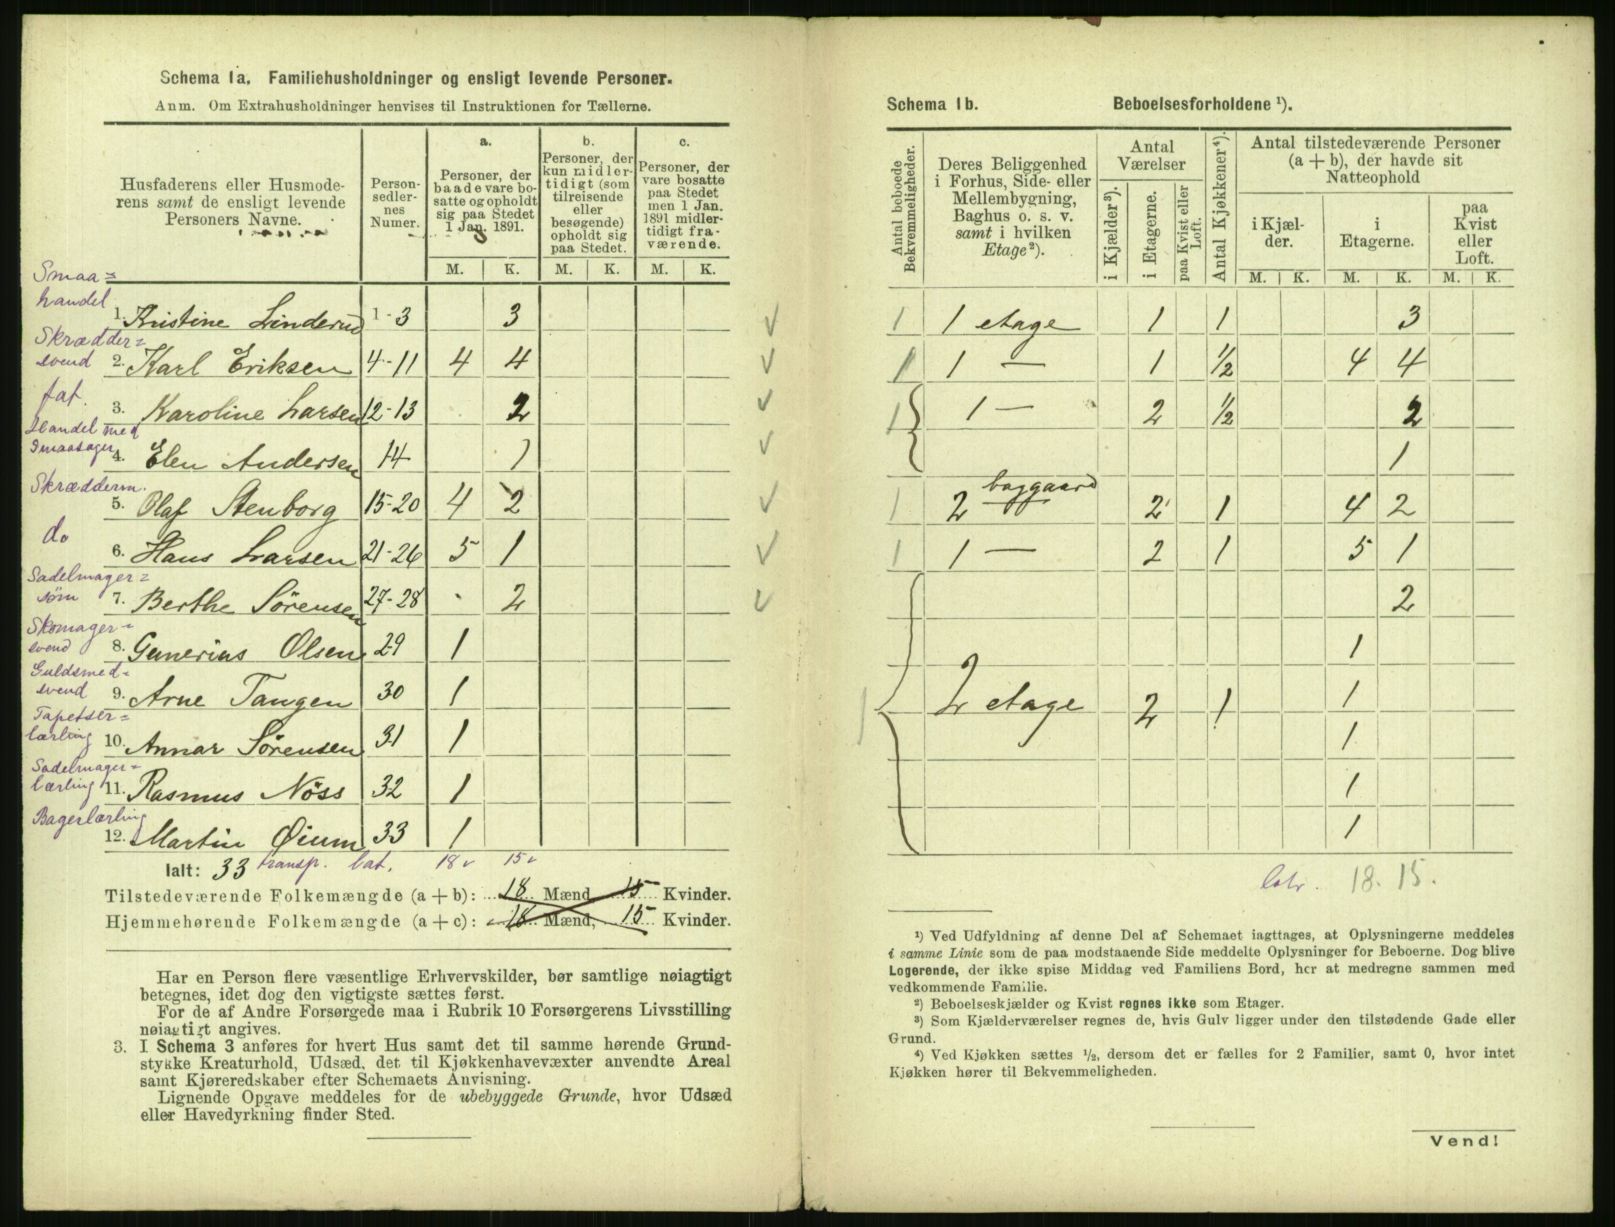 Schema 1a. Familiehusholdninger og ensligt levende Personer.
Anm. Om Extrahusholdninger henvises til Instruktionen for Tællerne.
Husfaderens eller Husmoderens samt de ensligt levende Personers Navne.
Personsedlernes Numer.
a. Personer, der baade vare bosatte og opholdt sig paa Stedet 1 Jan. 1891.
b. Personer, der kun midlertidigt (som tilreisende eller besøgende) opholdt sig paa Stedet.
c. Personer, der vare bosatte paa Stedet men 1 Jan. 1891 midlertidigt fraværende.
M. K. M. K. M. K.
Smaahandel
1. Kristine Linderud 1-3 3
Skræddersvend
2. Karl Eriksen 4-11 4 4
fat.
3. Karoline Larsen 12-13 2
Handel med Smaasager
4. Elen Andersen 14 1
Skrædderm.
5. Olaf Stenborg 15-20 4 2
do
6. Hans Larsen 21-26 5 1
Sadelmager=
7. Berthe Sörensen 27-28 2
Skomager=svend
8. Gunerius Olsen 29 1
Guldsmed=svend
9. Arne Tangen 30 1
Tapetser=lærling
10. Annar Sörensen 31 1
Sadelmager=lærling
11. Rasmus Nöss 32 1
Bagerlærling
12. Martin Øium 33 1
Ialt: 33 transp. lat. 18 15
Tilstedeværende Folkemængde (a + b): 18 Mænd 15 Kvinder.
Hjemmehørende Folkemængde (a + c): 18 Mænd, 15 Kvinder.
Har en Person flere væsentlige Erhvervskilder, bør samtlige nøiagtigt
betegnes, idet dog den vigtigste sættes først.
For de af Andre Forsørgede maa i Rubrik 10 Forsørgerens Livsstilling
nøiagtigt angives.
3. I Schema 3 anføres for hvert Hus samt det til samme hørende Grund-
stykke Kreaturhold, Udsæd, det til Kjøkkenhavevæxter anvendte Areal
samt Kjøreredskaber efter Schemaets Anvisning.
Lignende Opgave meddeles for de ubebyggede Grunde, hvor Udsæd
eller Havedyrkning finder Sted.
Schema 1b. Beboelsesforholdene ¹).
Antal beboede Bekvemmeligheder.
Deres Beliggenhed i Forhus, Side- eller Mellembygning, Baghus o. s. v. samt i hvilken Etage²).
Antal Værelser
i Kjælder³). i Etagerne. paa Kvist eller Loft.
Antal Kjøkkener⁴).
Antal tilstedeværende Personer (a + b), der havde sit Natteophold
i Kjælder. i Etagerne. paa Kvist eller Loft.
M. K. M. K. M. K.
1 1 etage 1 1 3
1 1 — 1 ½ 4 4
1 1 — 2 ½ 2
1
1 2 baggaard 2 1 4 2
1 1 — 2 1 5 1
2
1
1 2 etage 2 1 1
1
1
1
18. 15.
¹) Ved Udfyldning af denne Del af Schemaet iagttages, at Oplysningerne meddeles
i samme Linie som de paa modstaaende Side meddelte Oplysninger for Beboerne. Dog blive
Logerende, der ikke spise Middag ved Familiens Bord, her at medregne sammen med
vedkommende Familie.
²) Beboelseskjælder og Kvist regnes ikke som Etager.
³) Som Kjælderværelser regnes de, hvis Gulv ligger under den tilstødende Gade eller
Grund.
⁴) Ved Kjøkken sættes ½, dersom det er fælles for 2 Familier, samt 0, hvor intet
Kjøkken hører til Bekvemmeligheden.
Vend!